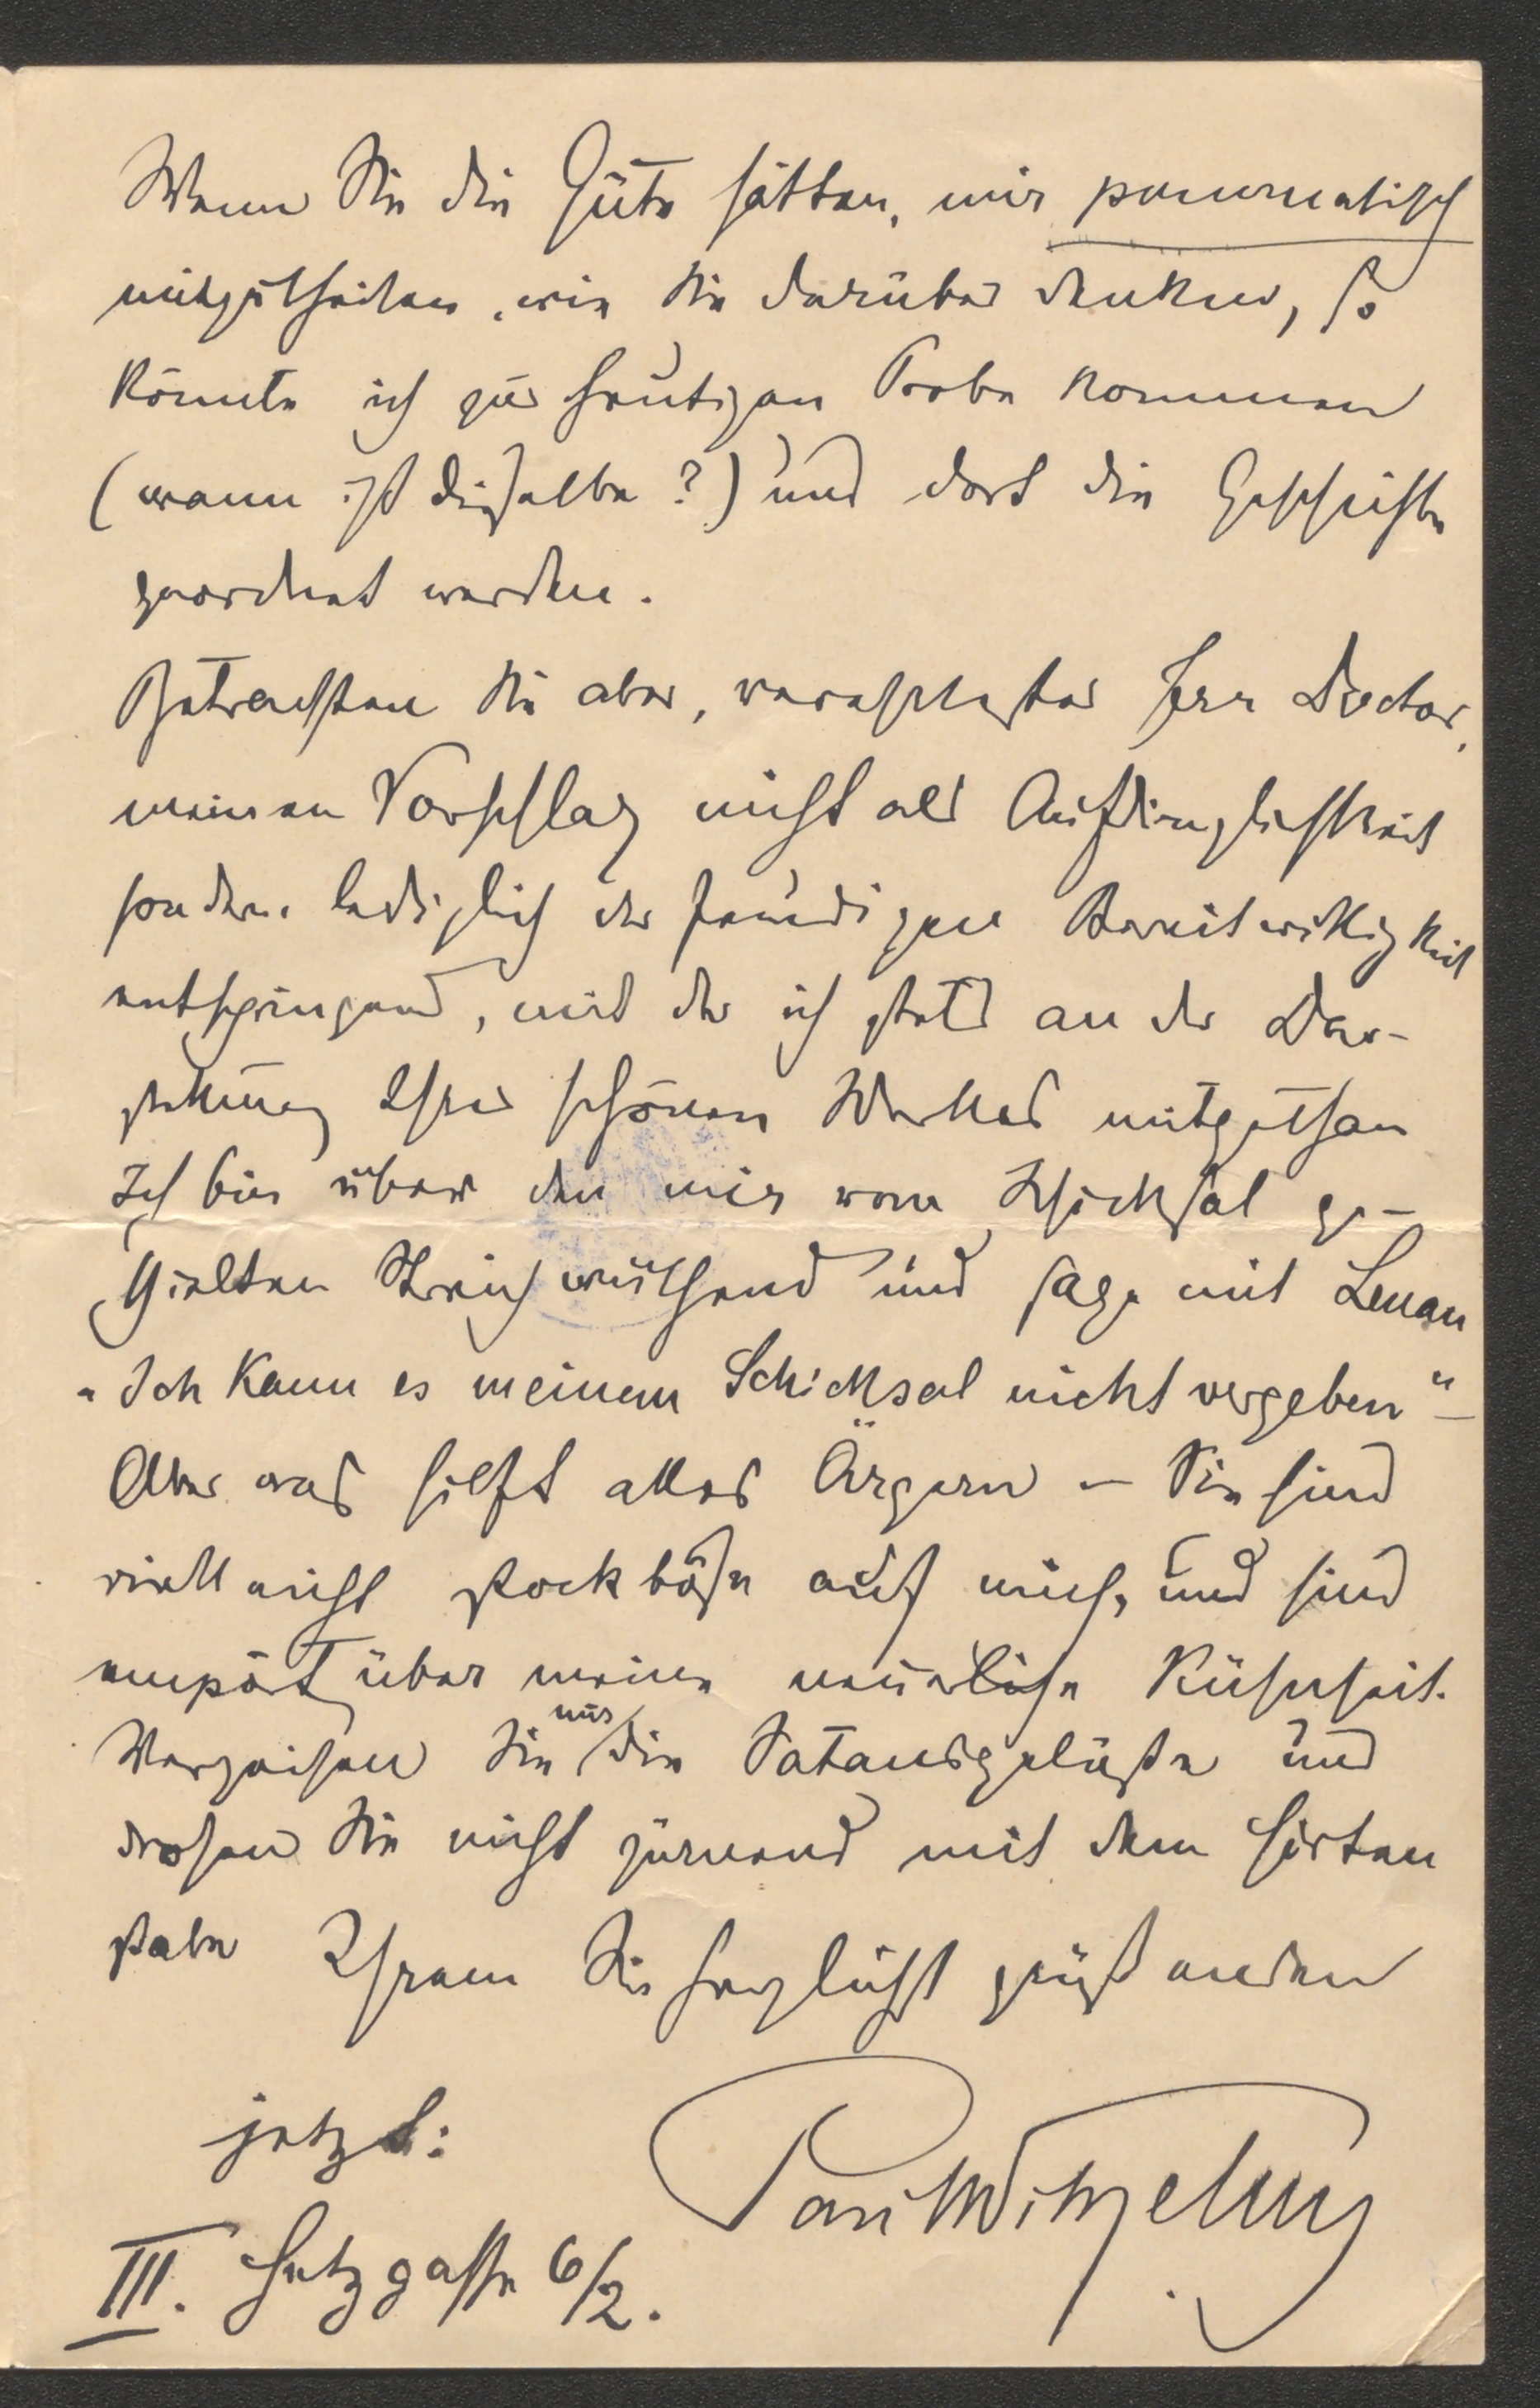 Wenn Sie die Güte hätten, mir pneumatisch
mitzutheilen, wie Sie darüber denken, so
könnte ich zur heutigen Probe kommen
(wann ist dieselbe?) und dort die Geschichte
geordnet werden.
Betrachten Sie aber, verehrtester Herr Doctor,
meinen Vorschlag nicht als Aufdringlichkeit
sondern lediglich der freudigen Bereitwilligkeit
entspringend, mit der ich stets an der Dar-
stellung Ihres schönen Werkes mitgethan
Ich bin über den mir vom Schicksal ge-
spielten Streich wüthend und sage mit Lenau
"Ich kann es meinem Schicksal nicht vergeben" –
Aber was hilft alles Ärgern – Sie sind
vielleicht stockböse auf mich, und sind
empört über meine neuerliche Kühnheit.
Verzeihen Sie nur die Satansgelüste und
drohen Sie nicht zürnend mit dem Hirten
stabe Ihrem Sie herzlichst grüßenden
Paul Wilhelm
jetzt:
III. Hetzgasse 6/2.